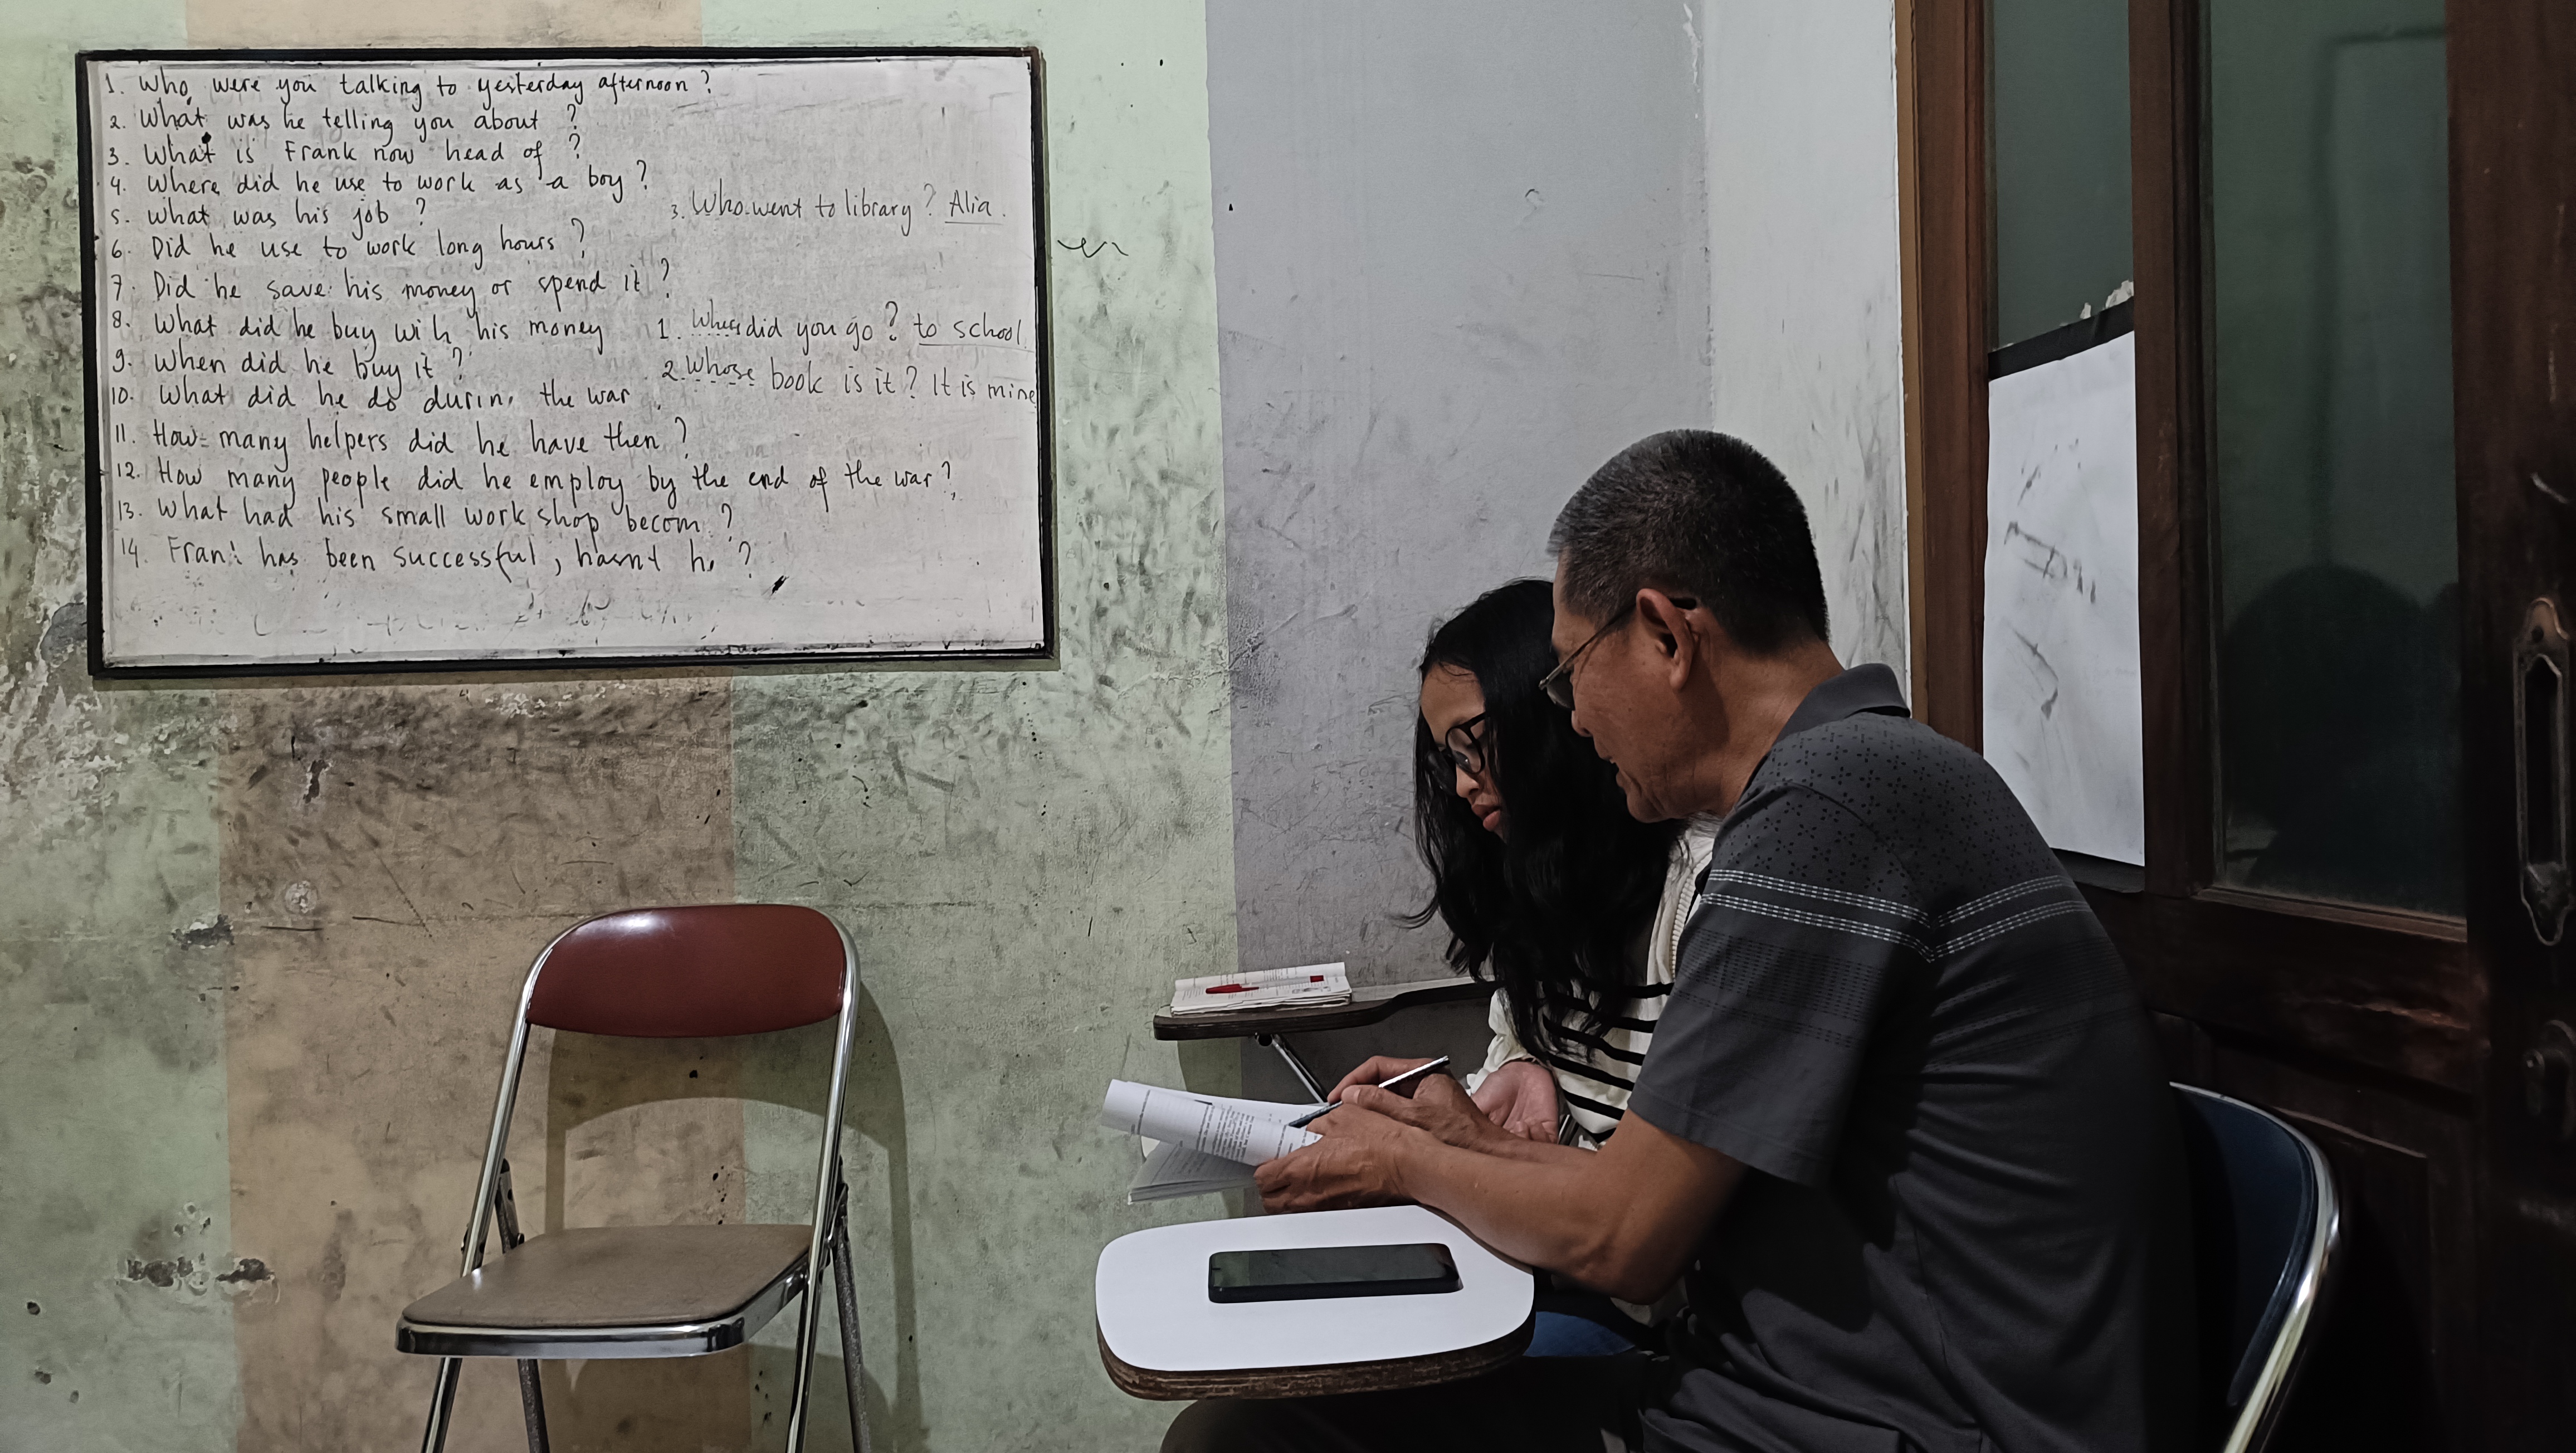 1. Who were you talking to yesterday afternoon?
2. What was he telling you about ?
3. What is Frank now head of ?
4. Where did he use to work as a boy?
5. What was his job ?
6. Did he use to work long hours ?
7. Did he save his money or spend it ?
8. What did he buy wih his money
9. When did he buy it ?
10. What did he do durin the war
11. How many helpers did he have then ?
12. How many people did he employ by the end of the war?
13. What had his small workshop becom ?
14. Fran has been successful, hasnt h ?
3. Who went to library ? Alia.
1. Where did you go ? to school
2. Whose book is it ? It is mine